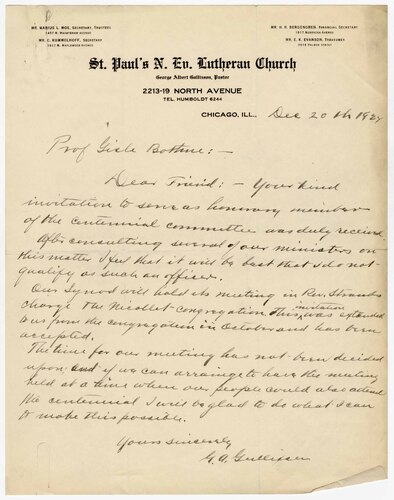 MR. MARIUS L. MOE, SECRETARY, TRUSTEES
2457 N. MAPLEWOOD AVENUE
MR. C. KUMMELHOFF, SECRETARY
1812 N. MAPLEWOOD AVENUE
MR. O. H. BERGENGREN, FINANCIAL SECRETARY
MR. E. K. EVANSON, TREASURER
St. Paul's N. Ev. Lutheran Church
George Albert Gullixson, Pastor
2213-19 NORTH AVENUE
TEL. HUMBOLDT 6244
CHICAGO, ILL., Dec 20th 1924
Prof Gisle Bothne:-
Dear Friend:- Your kind
invitation to serve as honorary member
of the centennial committee was duly received
After consulting several of our ministers on
this matter I feel that it will be best that I do not
qualify as such an officer.
Our Synod will hold its meeting in Rev. Strands
charge the Nicollet congregation. This invitation was extended
to us from the congregation in October and has been
accepted.
The time for our meeting has not been decided
upon and if we can arrange to have the meeting
held at a time when our people could also attend
the centennial I will be glad to do what I can
to make this possible.
Yours sincerely
G. A. Gullixson